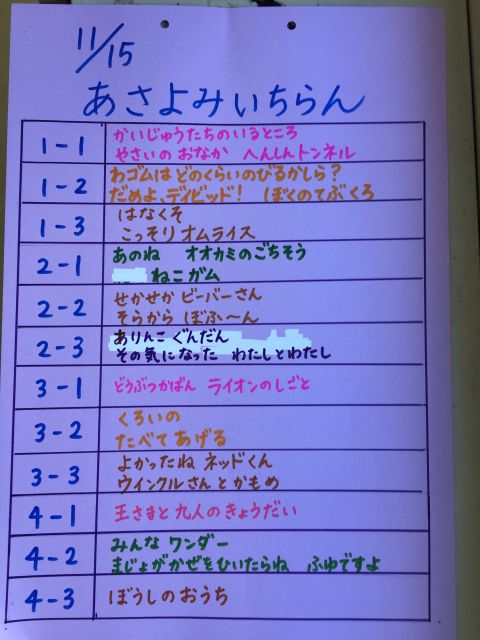 11/15
あさよみいちらん
1-1
かいじゅうたちのいるところ
やさいのおなか へんしんトンネル
1-2
わゴムはどのくらいのびるかしら?
だめよ、デイビッド! ぼくのてぶくろ
1-3
はなくそ
こっそりオムライス
2-1
あのね オオカミのごちそう
ねこガム
2-2
せかせかビーバーさん
そらからぼふ〜ん
2-3
ありんこぐんだん
その気になった わたしとわたし
3-1
どうぶつかばん ライオンのしごと
3-2
くろいの
たべてあげる
3-3
よかったねネッドくん
ウインクルさんとかもめ
4-1
王さまと九人のきょうだい
4-2
みんなワンダー
まじょがかぜをひいたらね ふゆですよ
4-3
ぼうしのおうち